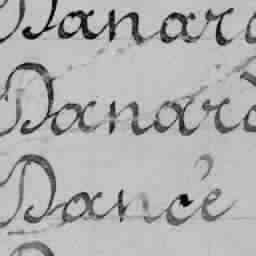 Danard
Danard
Dancé